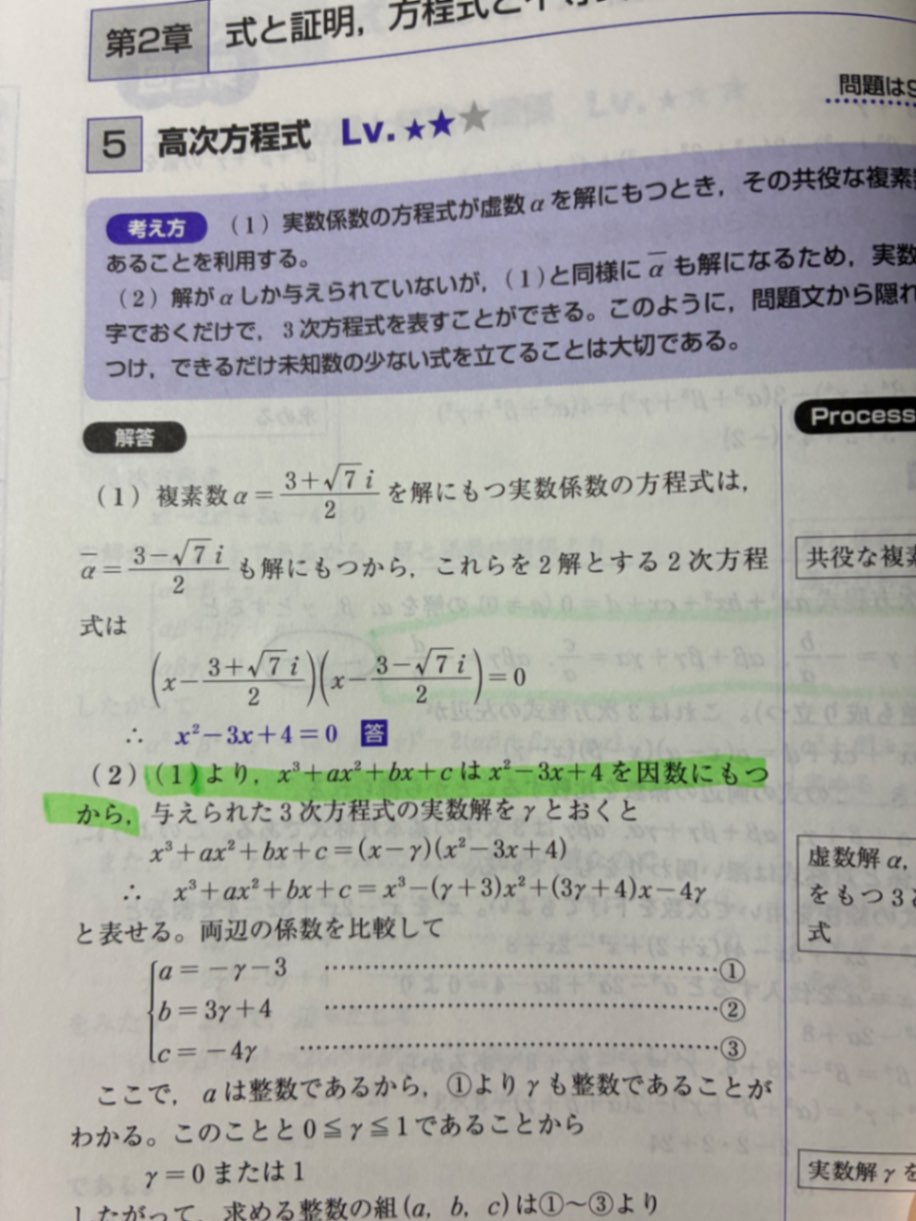 第2章 式と証明,方程式と不等
問題は
5 高次方程式 Lv.★★★
考え方 (1)実数係数の方程式が虚数αを解にもつとき,その共役な複素
あることを利用する。
(2)解がαしか与えられていないが,(1)と同様にα̅も解になるため,実数
字でおくだけで,3次方程式を表すことができる。このように,問題文から隠れ
つけ,できるだけ未知数の少ない式を立てることは大切である。
解答
Process
(1) 複素数α=(3+√7 i)/2 を解にもつ実数係数の方程式は,
α̅=(3−√7 i)/2 も解にもつから,これらを2解とする2次方程
共役な複素
式は
(x−(3+√7 i)/2)(x−(3−√7 i)/2)=0
∴ x²−3x+4=0 答
(2) (1)より,x³+ax²+bx+cはx²−3x+4を因数にもつ
から,与えられた3次方程式の実数解をγとおくと
x³+ax²+bx+c=(x−γ)(x²−3x+4)
∴ x³+ax²+bx+c=x³−(γ+3)x²+(3γ+4)x−4γ
と表せる。両辺の係数を比較して
虚数解α,
をもつ3
式
a=−γ−3 ……①
b=3γ+4 ……②
c=−4γ ……③
ここで,aは整数であるから,①よりγも整数であることが
わかる。このことと0≦γ≦1であることから
γ=0または1
実数解γを
したがって,求める整数の組(a, b, c)は①〜③より